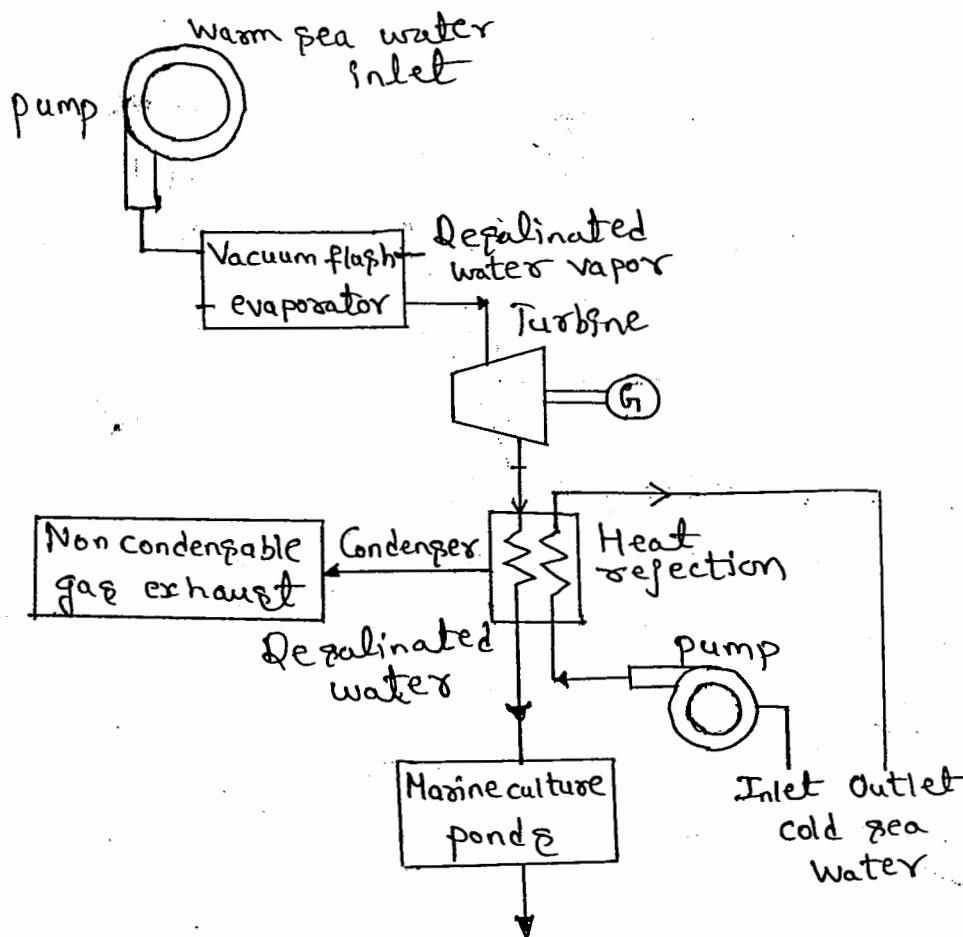 Warm sea water
inlet
pump
Vacuum flash
evaporator
Desalinated
water vapor
Turbine
G
Non condensable
gas exhaust
Condenser
Heat
rejection
Desalinated
water
pump
Marine culture
ponds
Inlet Outlet
cold sea
water